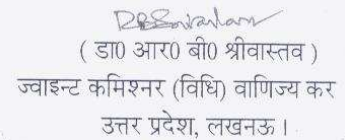 ( डा0 आर0 बी0 श्रीवास्तव )
ज्वाइन्ट कमिश्नर (विधि) वाणिज्य कर
उत्तर प्रदेश, लखनऊ।